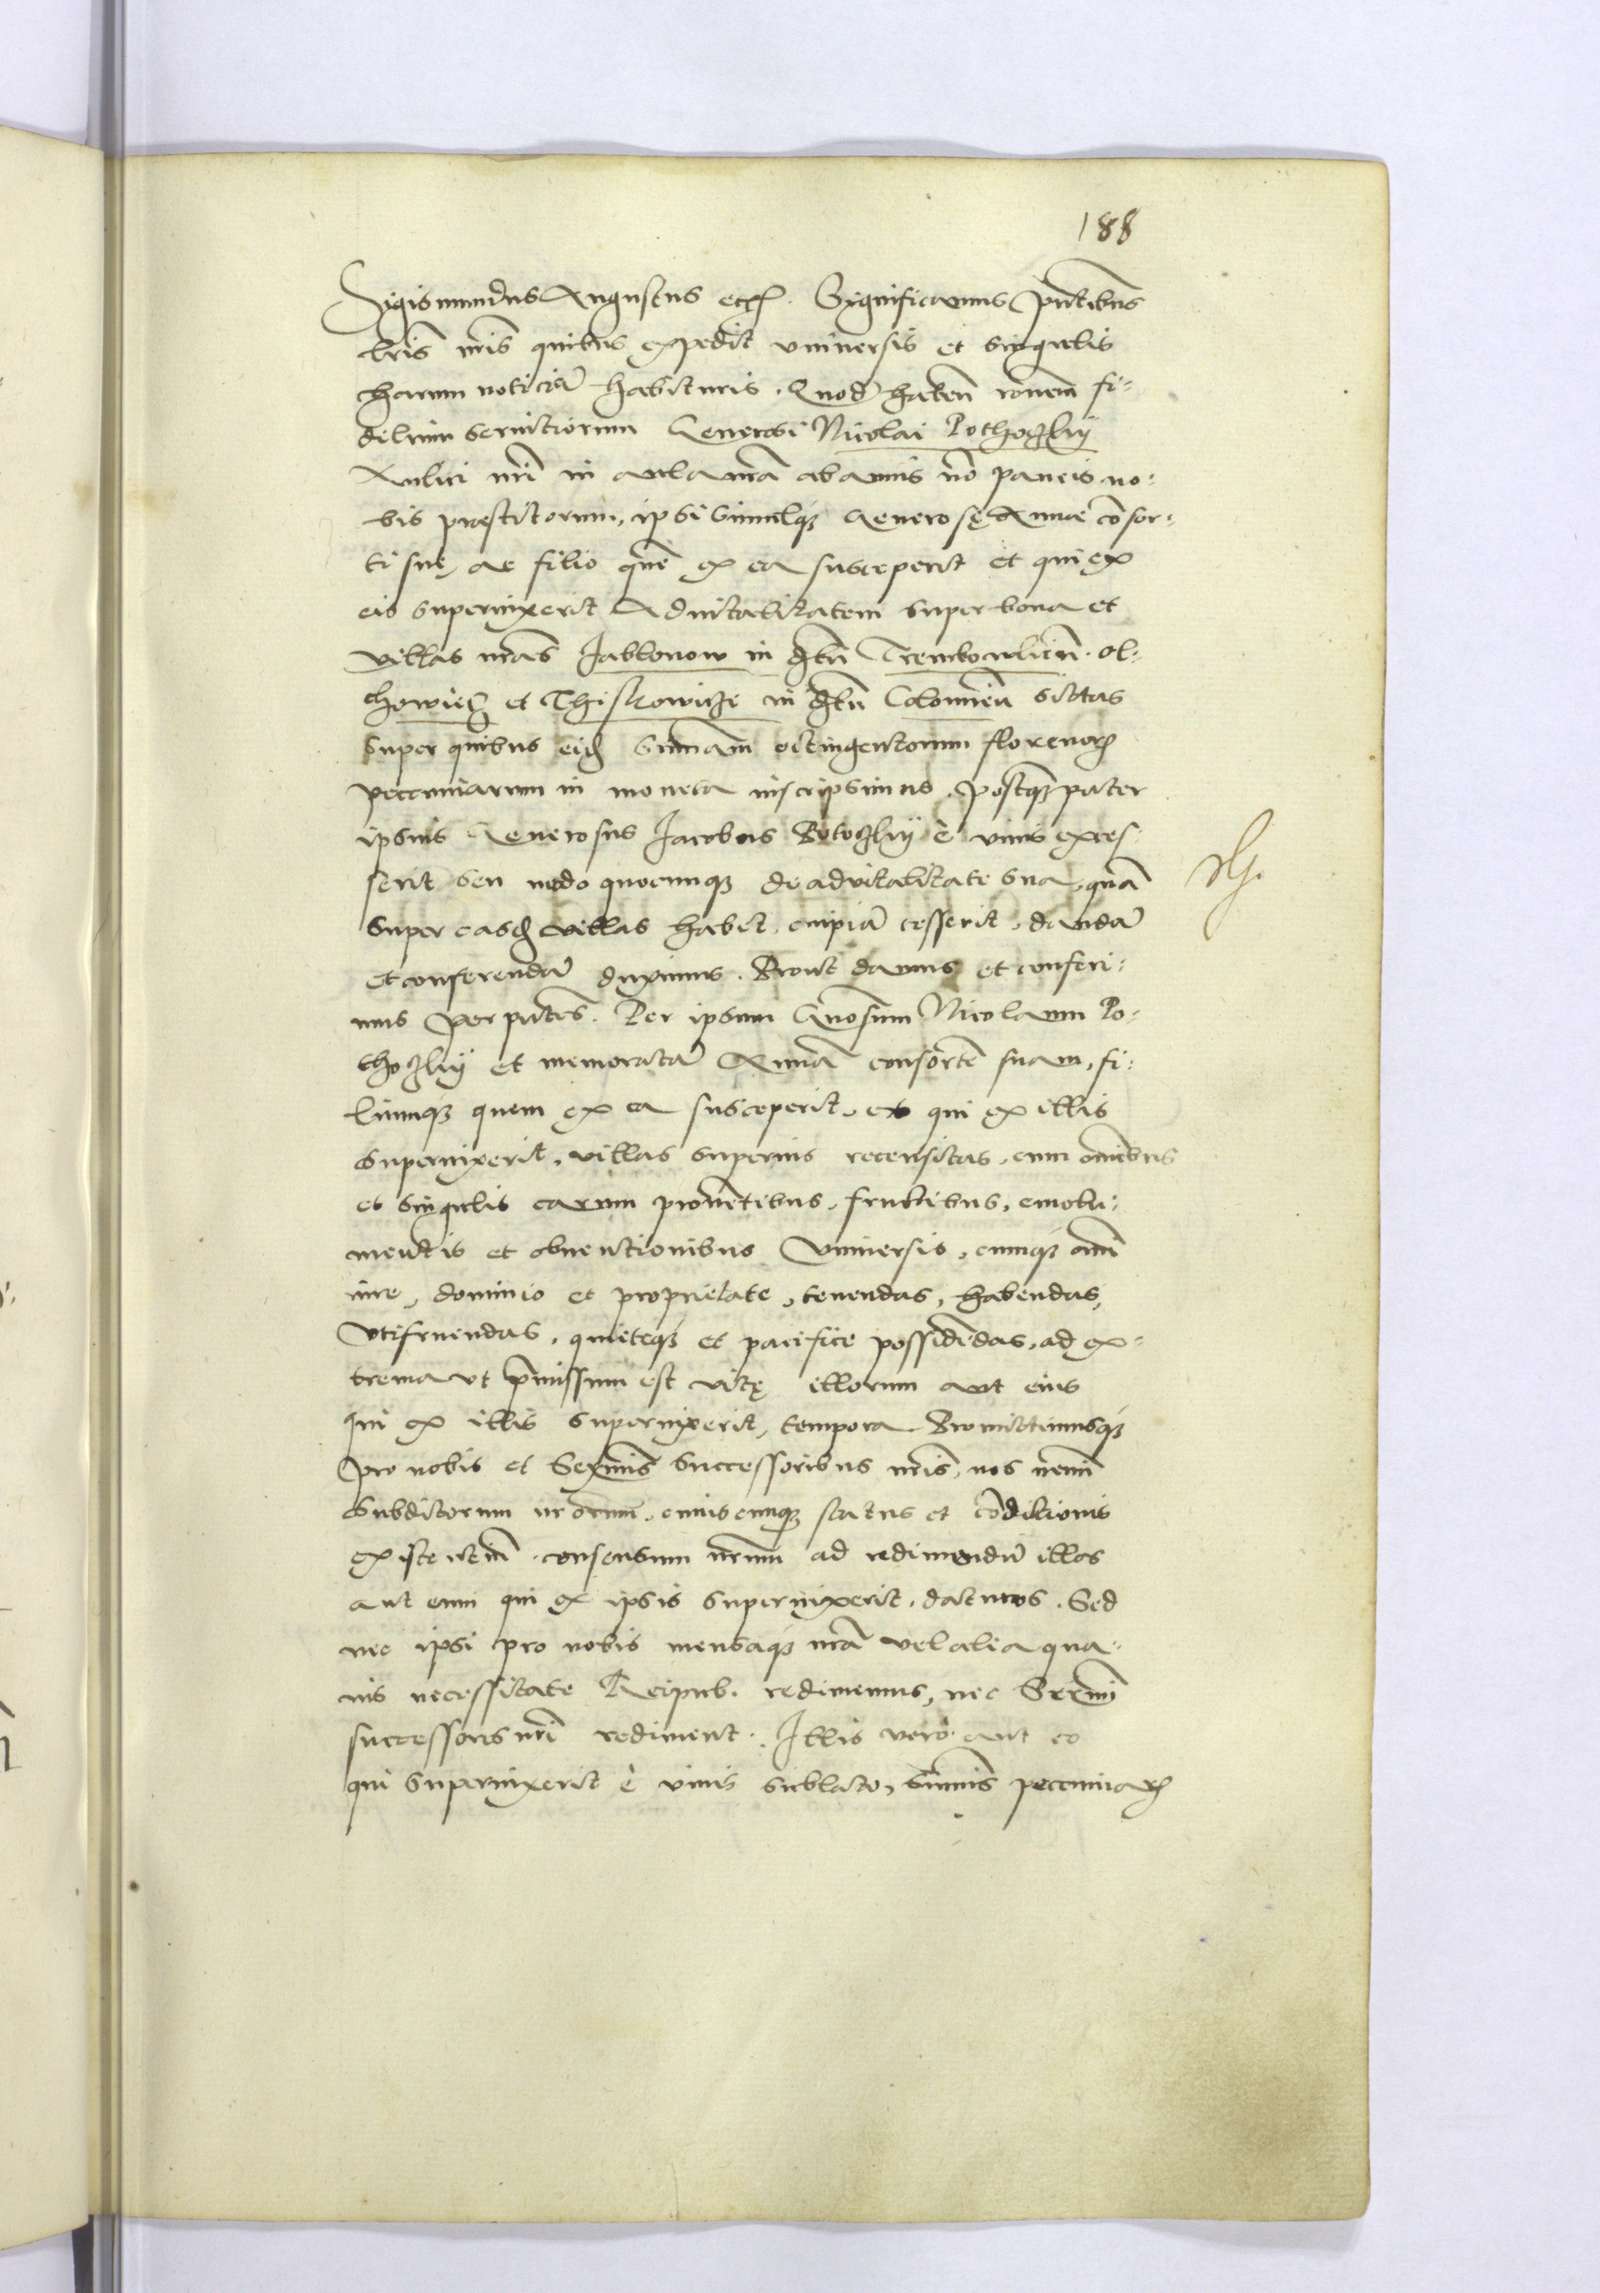 188
Sigismundus Augustus etc. Significamus pntibus
lris nris quibus expedit vniuersis et singulis
harum noticiã habituris. Quod haben̄ ronem fi-
delium seruitiorum Generosi Nicolai Pothoczkij
Aulici nri in aula nrã ab annis nõ paucis no-
bis præstitorum, ipsi simulq3 Generosę Annae cõsor-
ti suę, ac filio quẽ ex ea susceperit et qui ex
eis superuixerit Aduitalitatem super bona et
villas nras Jablonow in dtu Trembowlien̄. Ol-
chowiecz et Thiskowicze in dtu Colomien̄ sitas
super quibus eid̄ summam octingentorum florenor̃
pecuniarum in moneta inscripsimus, postq̃ pater
ipsius Generosus Jacobus Potoczkij è viuis exces-
serit seu modo quocumq3 de aduitalitate sua, quã
super easd̄ villas habet, cuipiã cesserit, dandã
et conferendã duximus. Prout damus et conferi-
mus per pntes. Per ipsum Gnosum Nicolaum Po-
thoczkij et memoratã Annã consortẽ suam, fi-
liumq3 quem ex ea susceperit, et qui ex illis
superuixerit, villas superius recensitas, cum omnibus
et singulis earum prouẽtibus, fructibus, emolu-
mentis et obuentionibus vniuersis, cumq3 omni
iure, dominio et proprietate, tenendas, habendas,
vtifruendas, quieteq3 et pacifice possidẽdas, ad ex-
trema vt p̃missum est vitę illorum aut eius
qui ex illis superuixerit, tempora. Promittimusq3
pro nobis et Serenmis successoribus nris, nos nemi
subditorum nrorum, cuiuscumq3 status et cõditionis
existentem̄ consensum nrum ad redimendũ illos
aut eum qui ex ipsis superuixerit, daturos. Sed
nec ipsi pro nobis mensaq3 nrã vel alia qua-
uis necessitate Reipub. redimemus, nec Sermi
successores nri rediment. Illis verò aut eo
qui superuixerit è viuis sublato, summis pecuniar̃